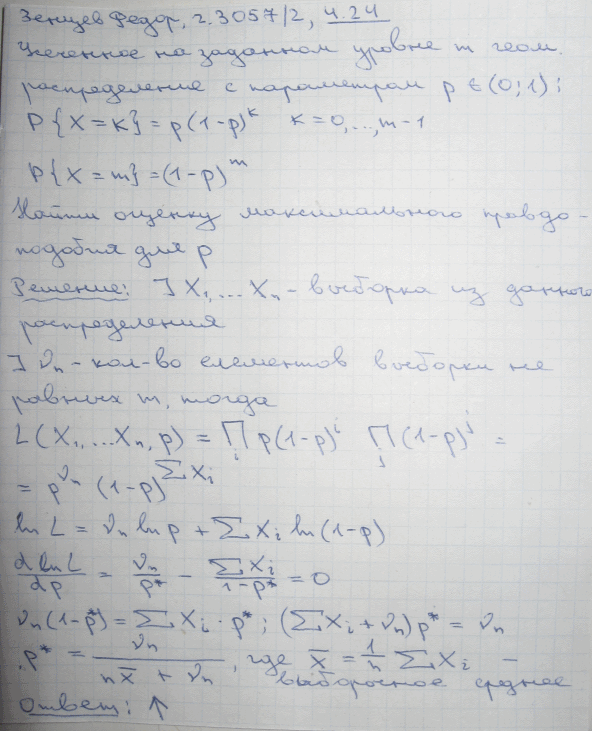 Зенцев Федор, г. 3057/2, 4.24
Усеченное на заданном уровне m геом.
распределение с параметром p ∈ (0;1):
P{X=k} = p(1-p)^k k=0,...,m-1
P{X=m} = (1-p)^m
Найти оценку максимального правдо-
подобия для p
Решение: ] X₁,... Xₙ - выборка из данного
распределения
] νₙ - кол-во елементов выборки не
равных m, тогда
L(X₁,...Xₙ, p) = ∏_i p(1-p)^i ∏_j (1-p)^j =
= p^νₙ (1-p)^ΣXᵢ
ln L = νₙ ln p + ΣXᵢ ln(1-p)
d ln L / dp = νₙ / p* - ΣXᵢ / (1-p*) = 0
νₙ(1-p*) = ΣXᵢ · p*; (ΣXᵢ + νₙ) p* = νₙ
p* = νₙ / (n x̅ + νₙ), где x̅ = 1/n ΣXᵢ -
выборочное среднее
Ответ: ↑